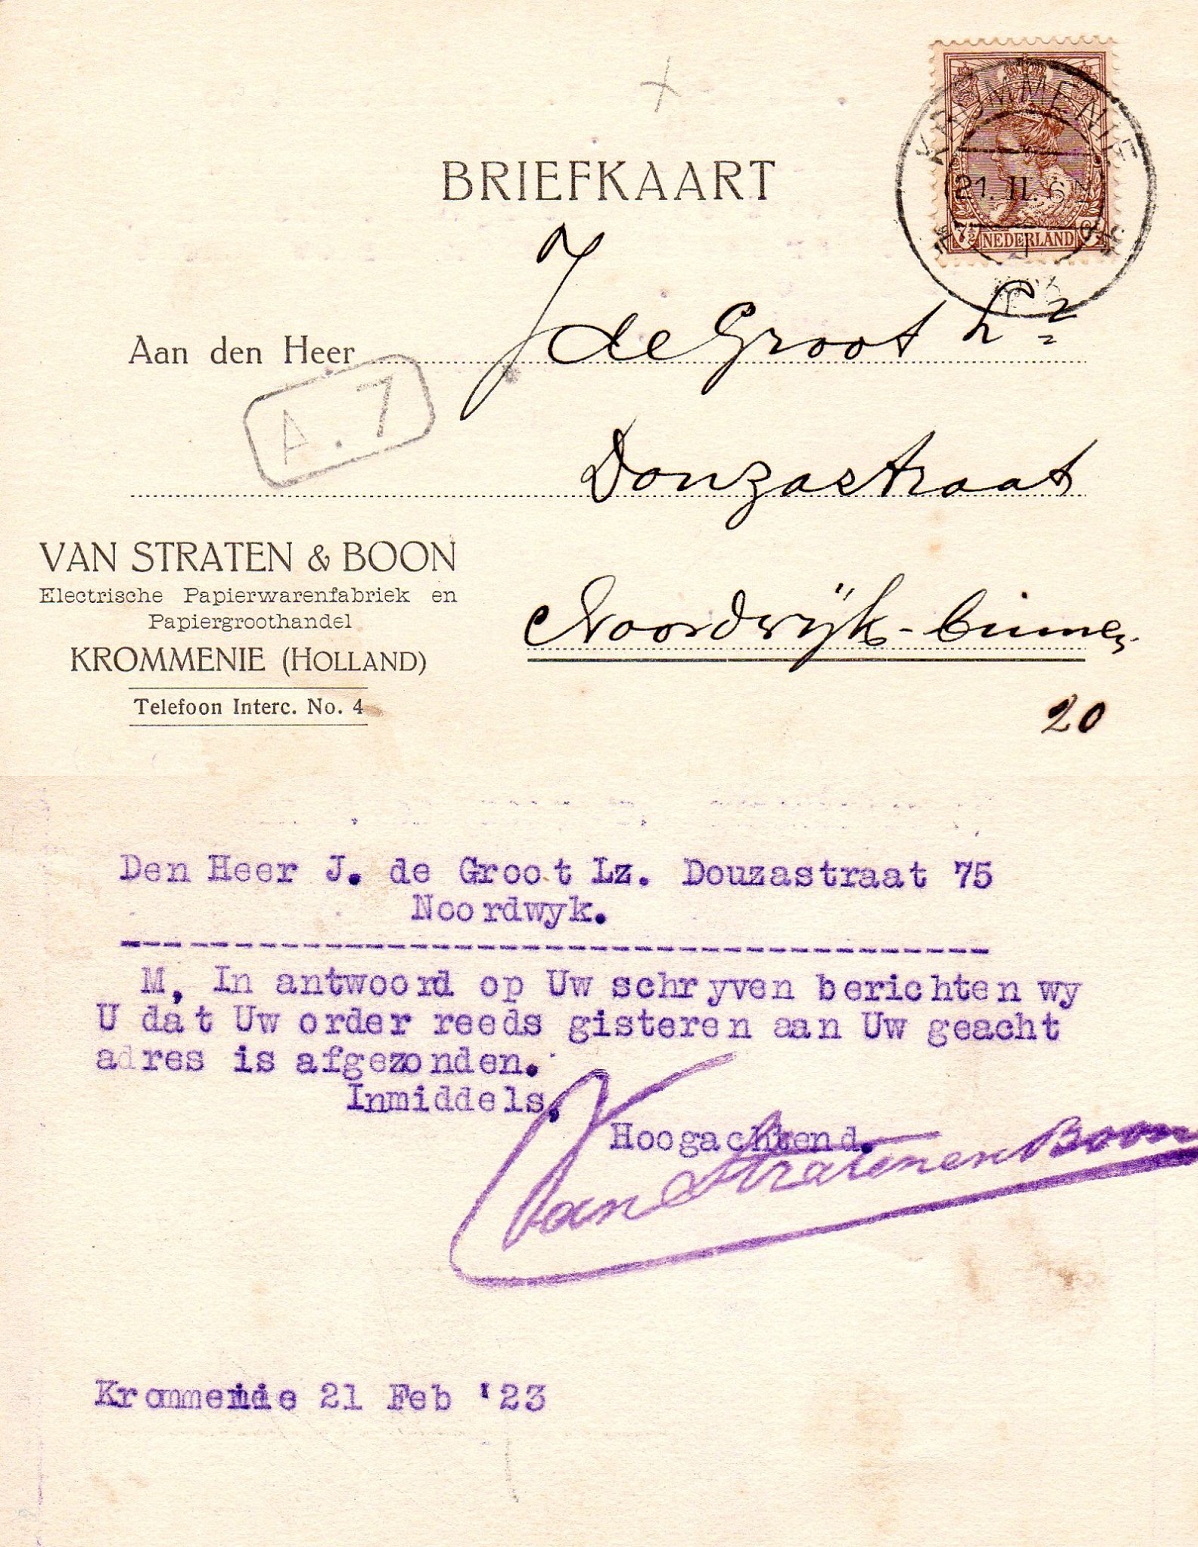 BRIEFKAART
KROMMENIE
21. II. 6
7½
NEDERLAND
Aan den Heer J de Groot Lz
A. 7
Douzastraat
Noordwijk-binnen
20
VAN STRATEN & BOON
Electrische Papierwarenfabriek en
Papiergroothandel
KROMMENIE (HOLLAND)
Telefoon Interc. No. 4
Den Heer J. de Groot Lz. Douzastraat 75
Noordwyk.
---------------------------------------
M, In antwoord op Uw schryven berichten wy
U dat Uw order reeds gisteren aan Uw geacht
adres is afgezonden.
Inmiddels,
Hoogachtend.
Van Straten en Boon
Krommenie 21 Feb '23